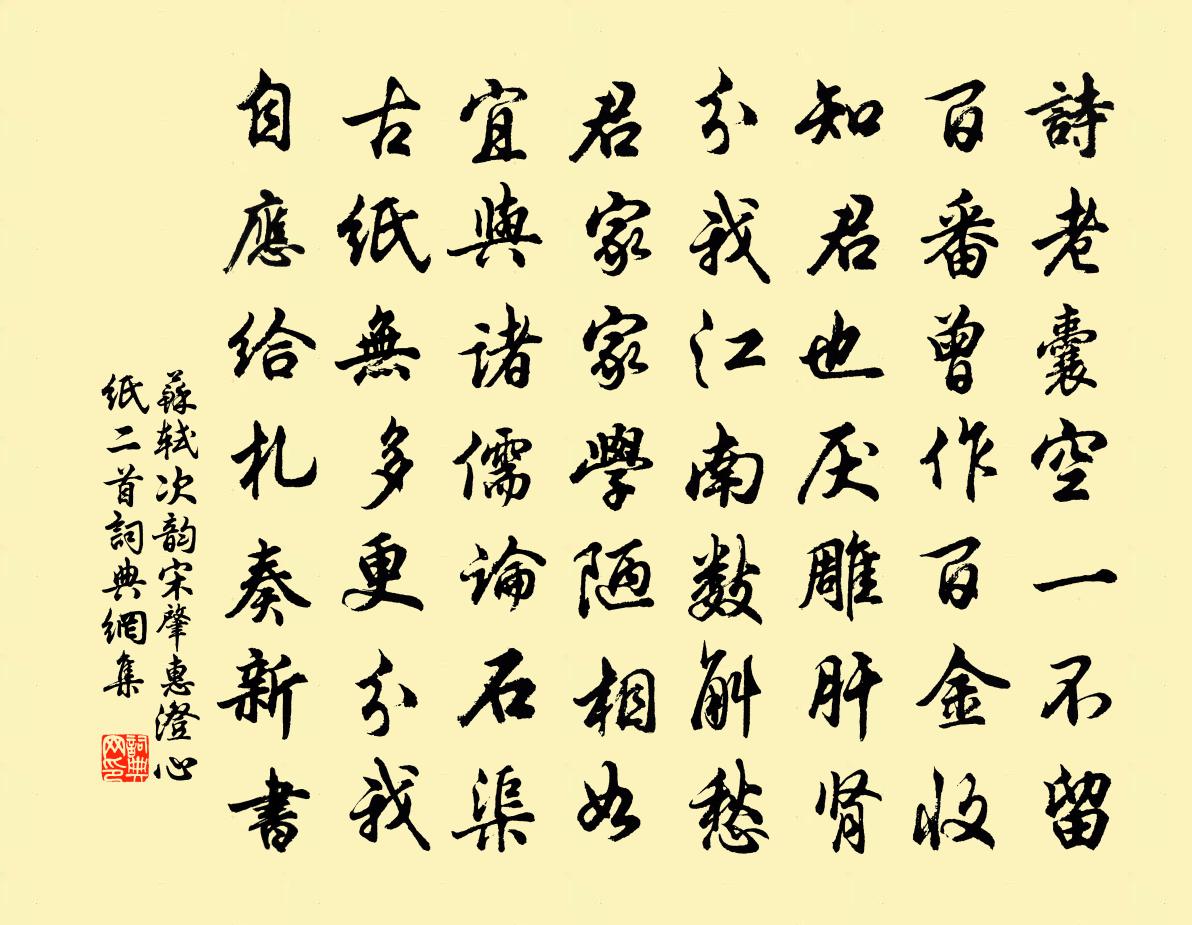 詩老囊空一不留
百番曾作百金收
知君也厌雕肝肾
分我江南數斛愁
君家家學陋相如
宜與諸儒論石渠
古紙無多更分我
自應給札奏新書
蘇軾次韵宋肇惠澄心
紙二首詞典網集
詞典
网印